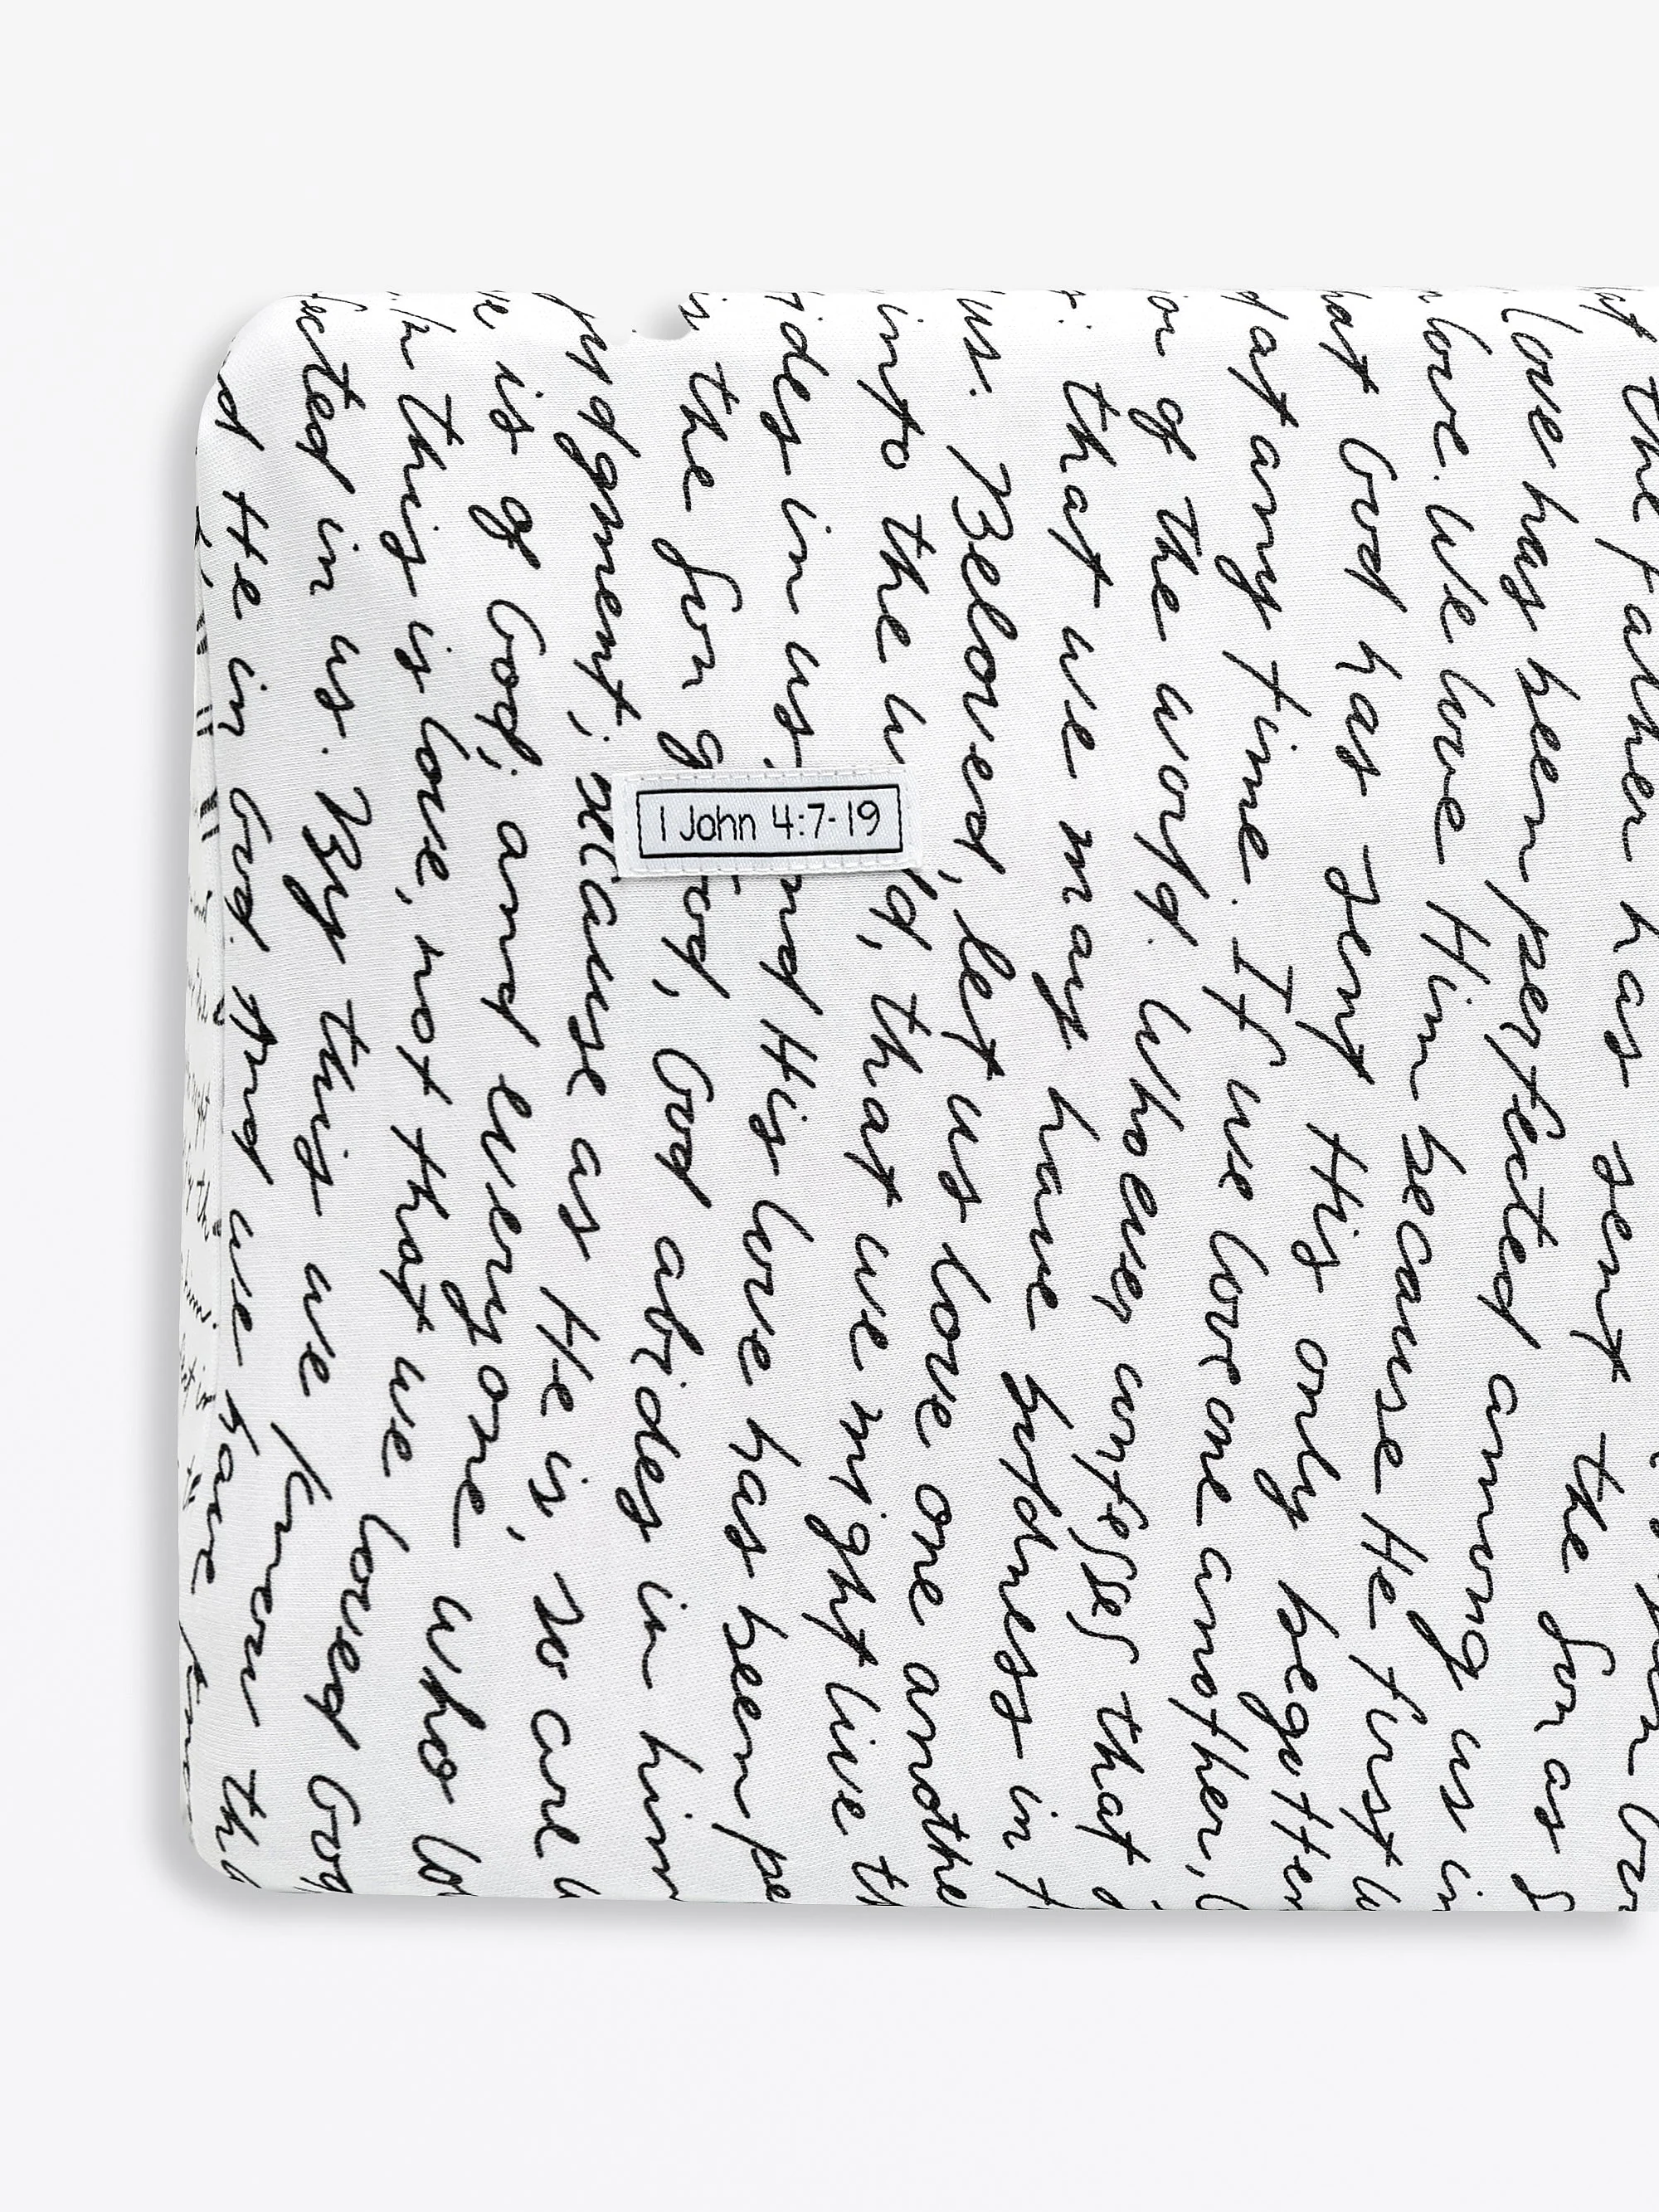 the Father has sent the Son as S
love has been perfected among us in
love. We love Him because He first
hat God has sent His only begotten
at any time. If we love one another,
or of the world. Whoever confesses that
that we may have boldness in t
us. Beloved, let us love one anothe
into the w ld, that we might live th
ides in us, and His love has been pe
is the Son God, God abides in him
judgment; because as He is, so are w
ve is of God; and everyone who lo
In this is love, not that we loved God
ected in us. By this we know th
d He in God. And we have know
1 John 4:7-19